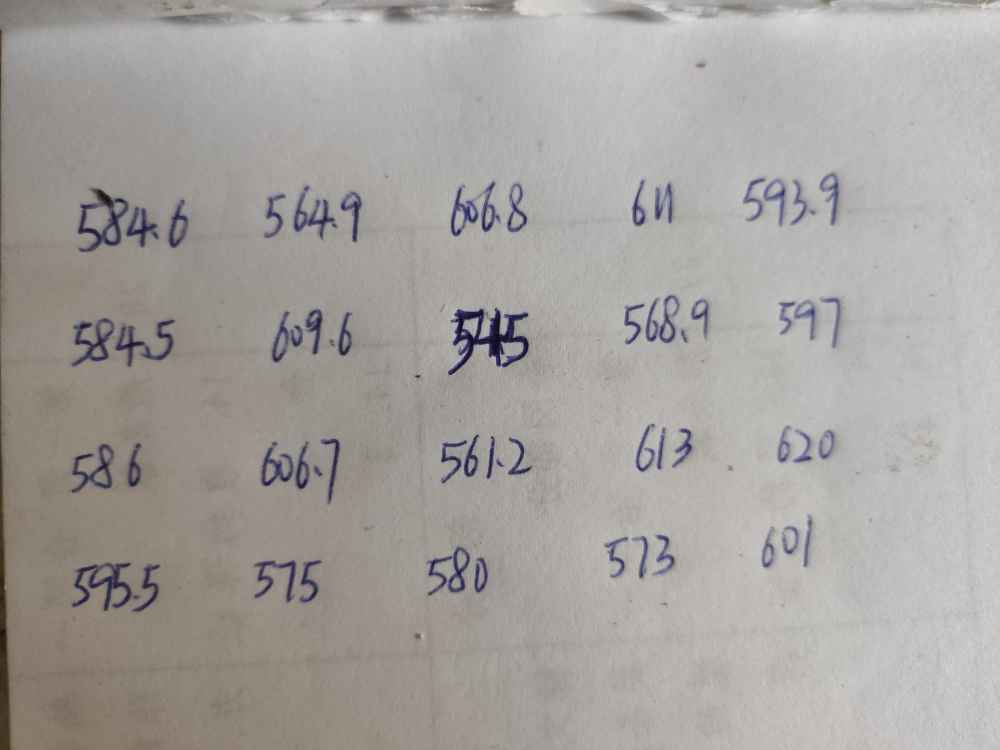 584.6 564.9 606.8 611 593.9
584.5 609.6 545 568.9 597
586 606.7 561.2 613 620
595.5 575 580 573 601